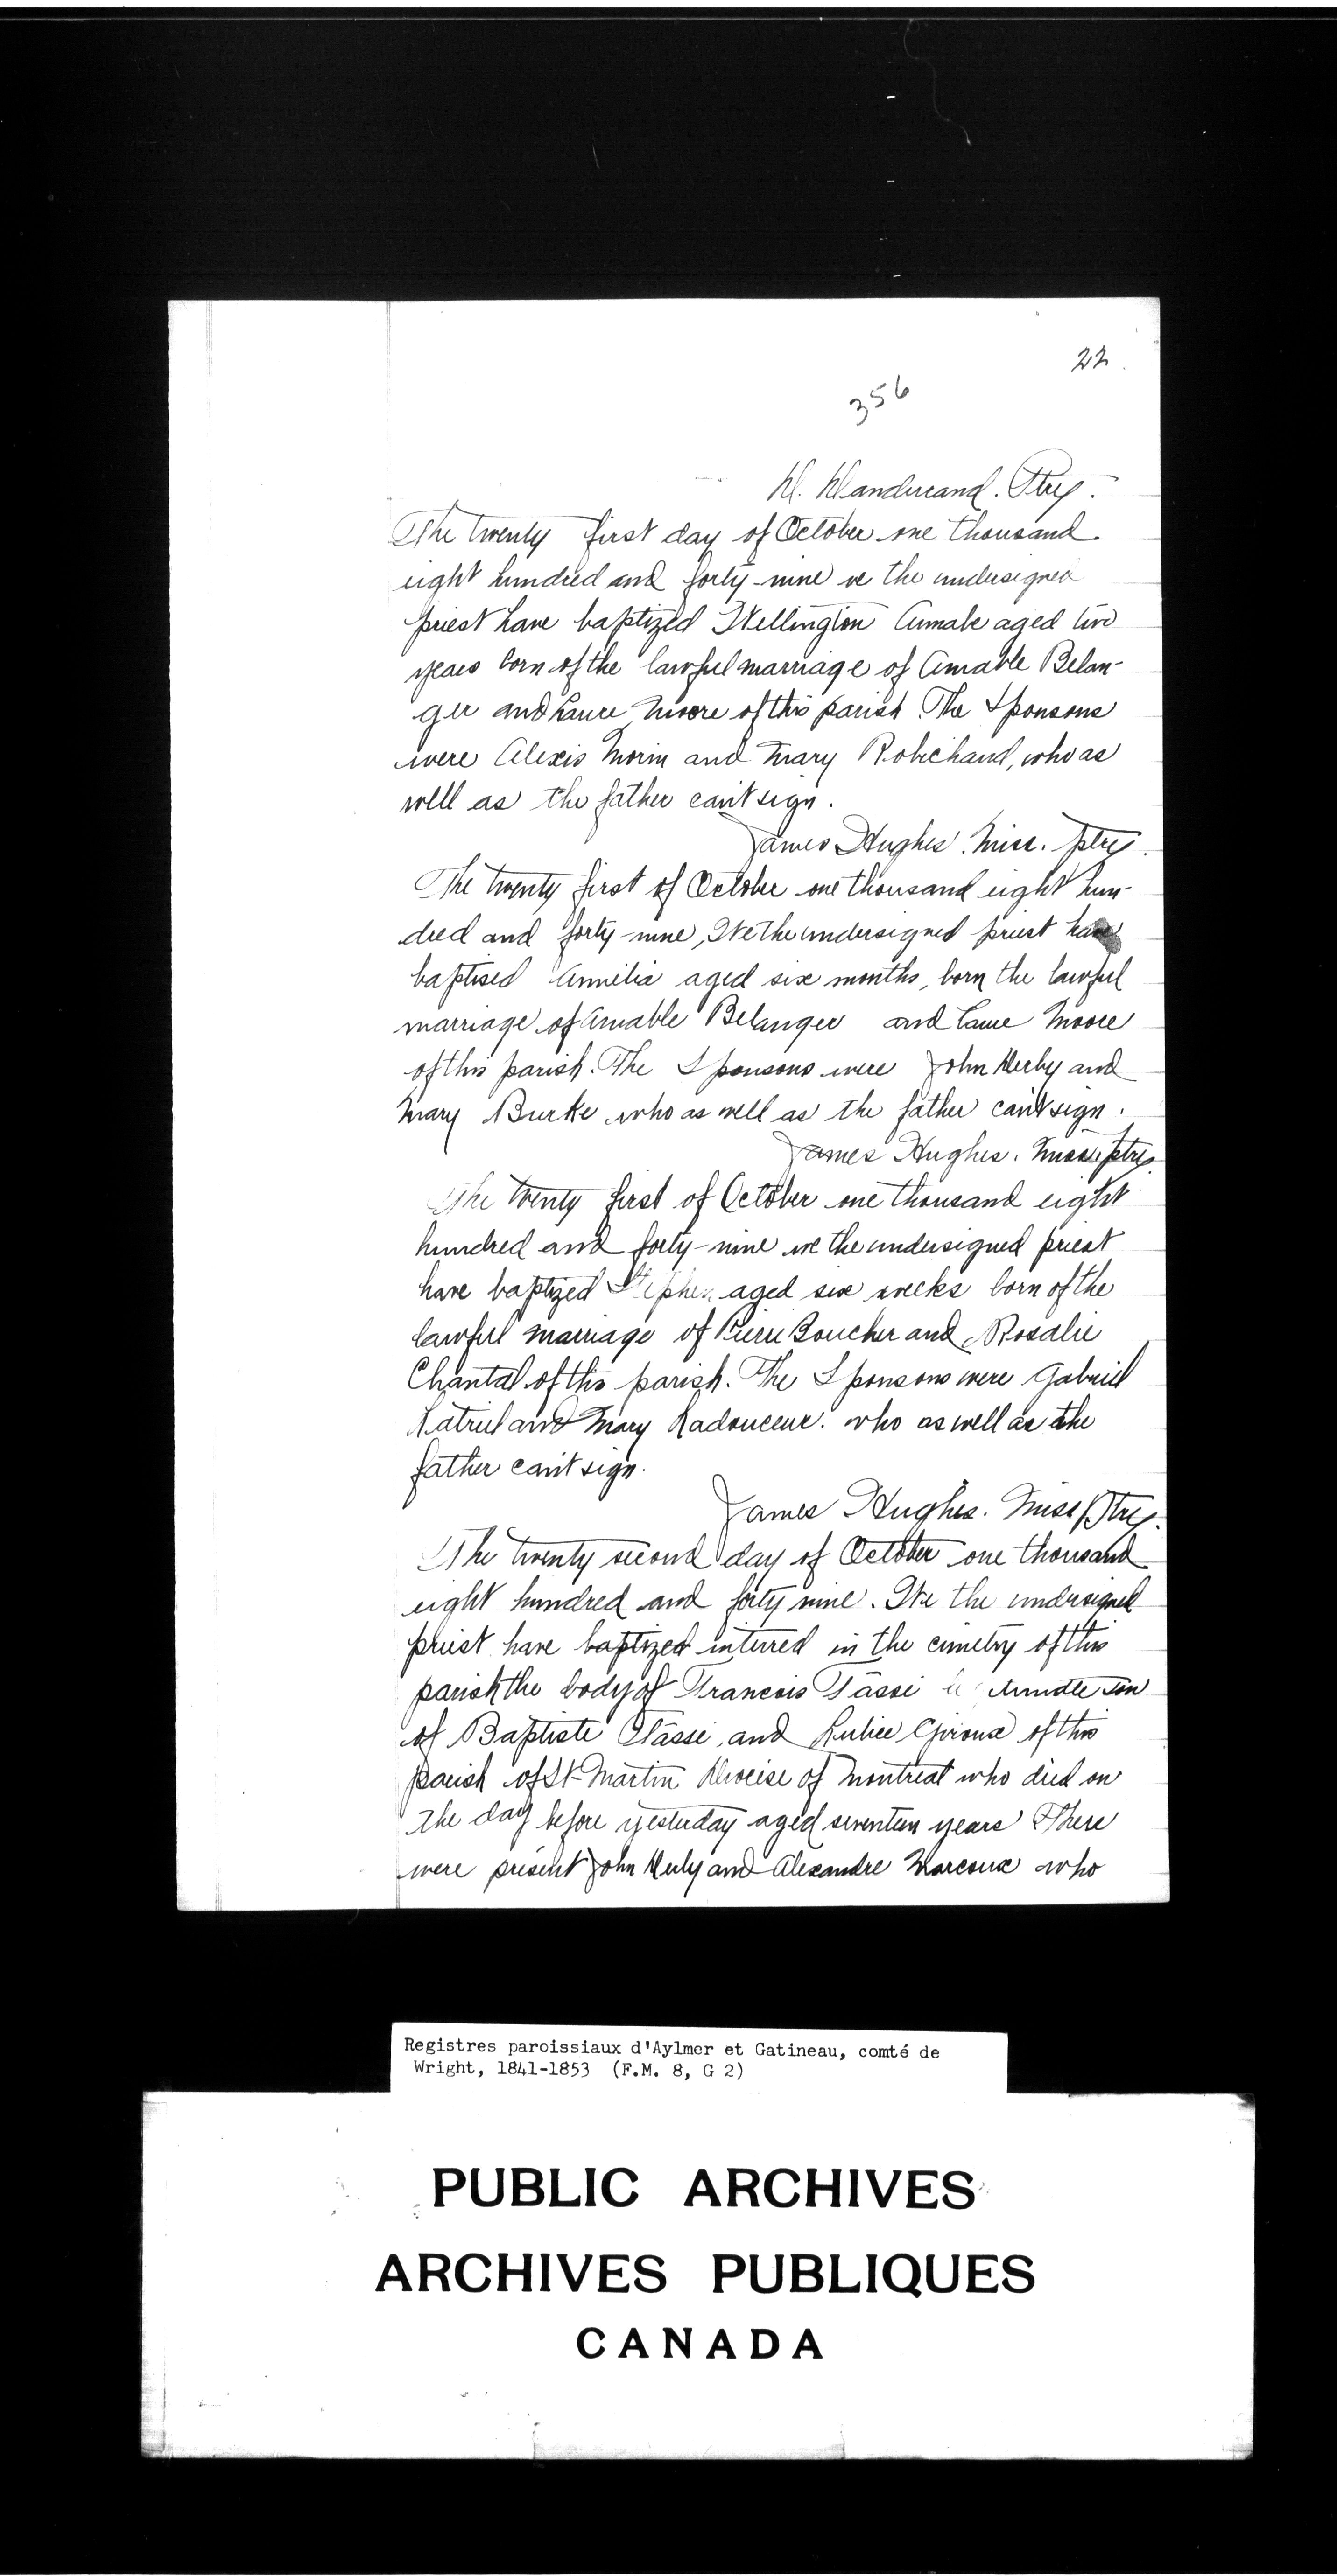 22.
356
D. Dandurand. Ptre.
The twenty first day of October one thousand
eight hundred and forty-nine we the undersigned
priest have baptized Wellington Amable aged two
years born of the lawful marriage of Amable Belan-
ger and Laure Moore of this parish. The Sponsons
were Alexis Morin and Mary Robichaud, who as
well as the father can't sign.
James Hughes Miss. ptre.
The twenty first of October one thousand eight hun-
dred and forty-nine, We the undersigned priest have
baptised Annelia aged six months, born the lawful
marriage of Amable Belanger and Laure Moore
of this parish. The Sponsons were John Kerby and
Mary Burke who as well as the father can't sign.
James Hughes. Miss. ptre.
The twenty first of October one thousand eight
hundred and forty-nine we the undersigned priest
have baptized Stephen aged six weeks born of the
lawful marriage of Pierre Boucher and Rosalie
Chantal of this parish. The Sponsons were Gabriel
Latriel and Mary Ladouceur. who as well as the
father can't sign.
James Hughes. Miss Ptre.
The twenty second day of October one thousand
eight hundred and forty nine. We the undersigned
priest have baptized interred in the cimetry of this
parish the body of Francois Tassé son
of Baptiste Tassé, and Giroux of this
parish of St Martin Diocise of Montreal who died on
the day before yesterday aged seventeen years There
were présent John and Alexandre Marcoux who
Registres paroissiaux d'Aylmer et Gatineau, comté de
Wright, 1841-1853 (F.M. 8, G 2)
PUBLIC ARCHIVES
ARCHIVES PUBLIQUES
CANADA